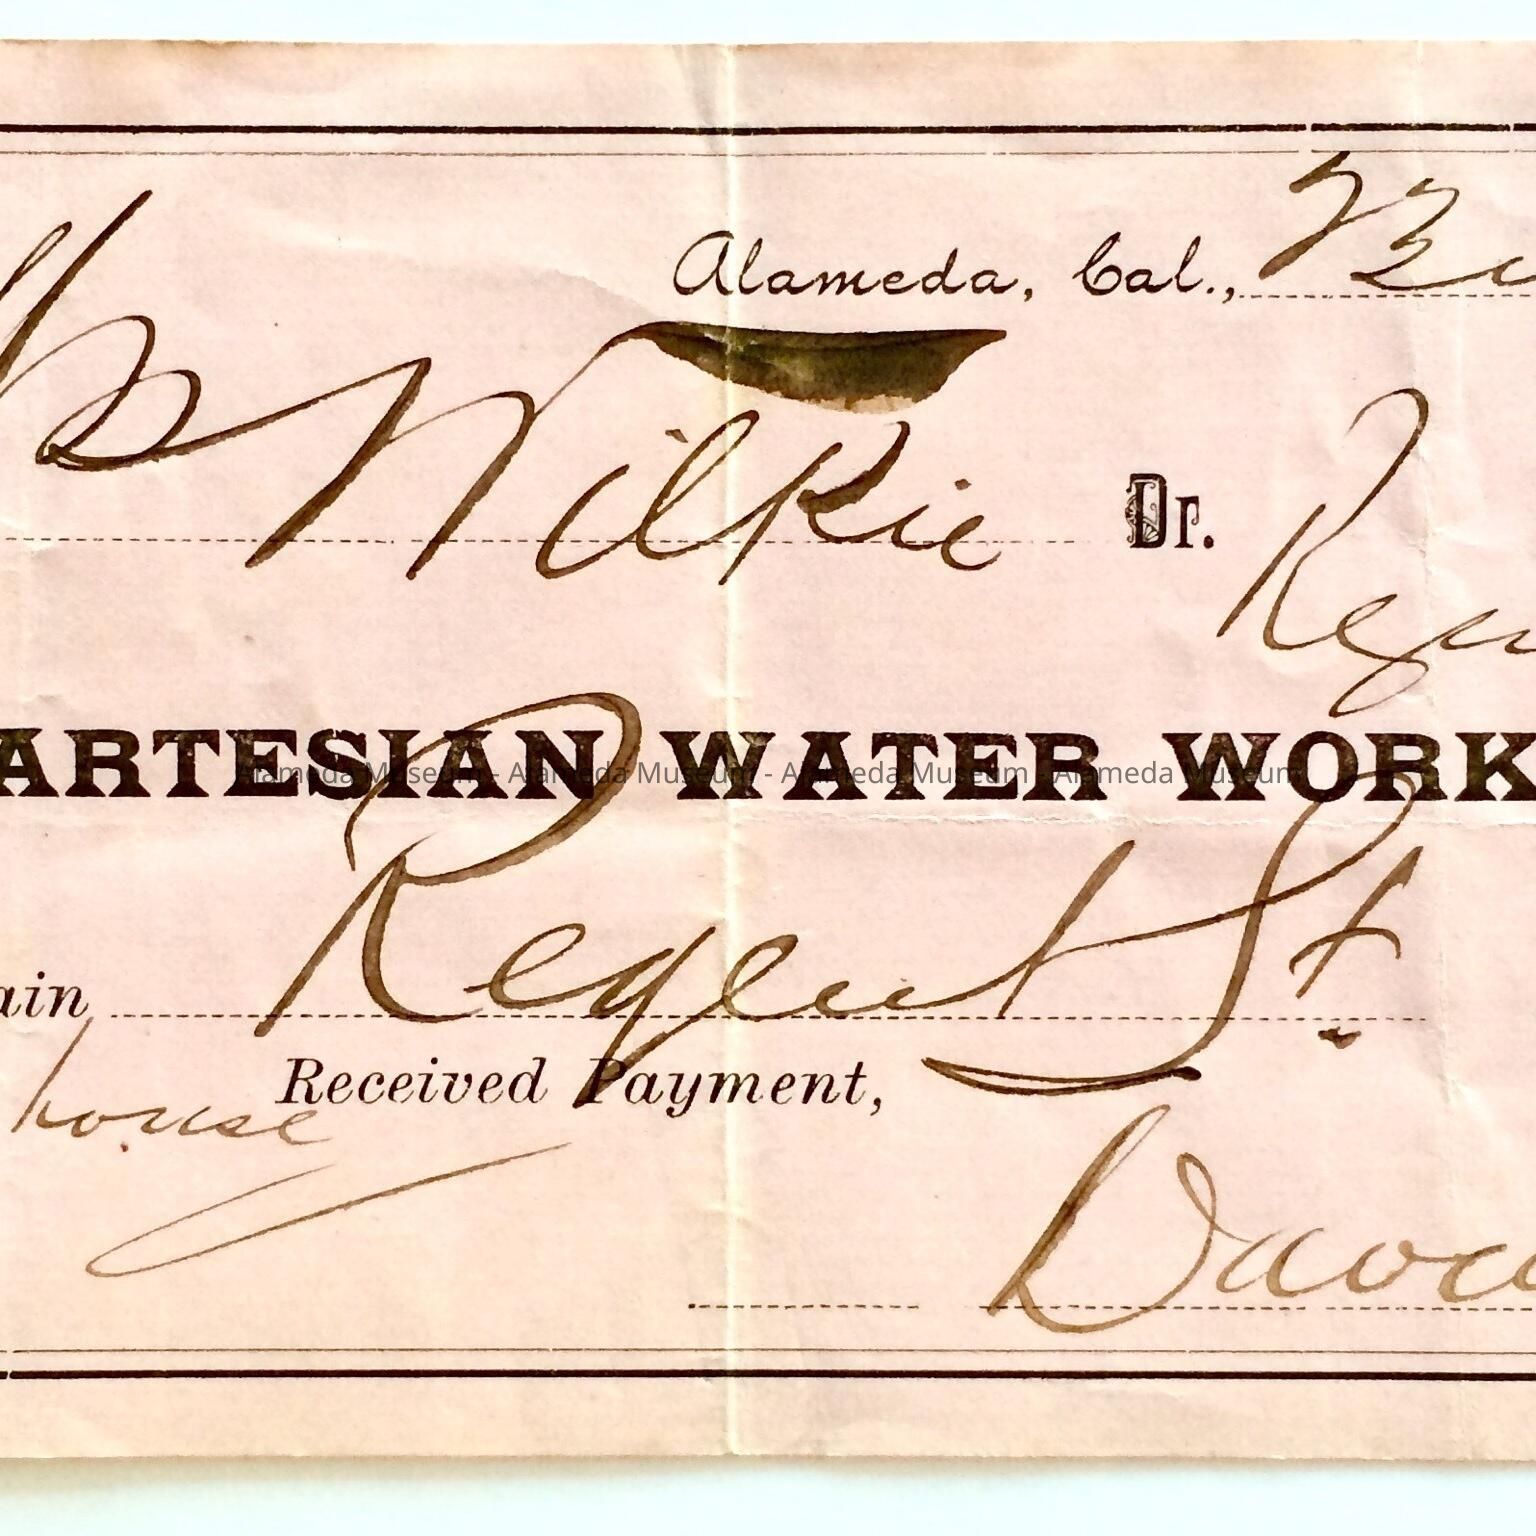 Alameda, Cal.,
Wilkie Dr.
ARTESIAN WATER WORK
Alameda Museum - Alameda Museum - Alameda Museum - Alameda Museum
ain Regent St.
Received Payment,
house